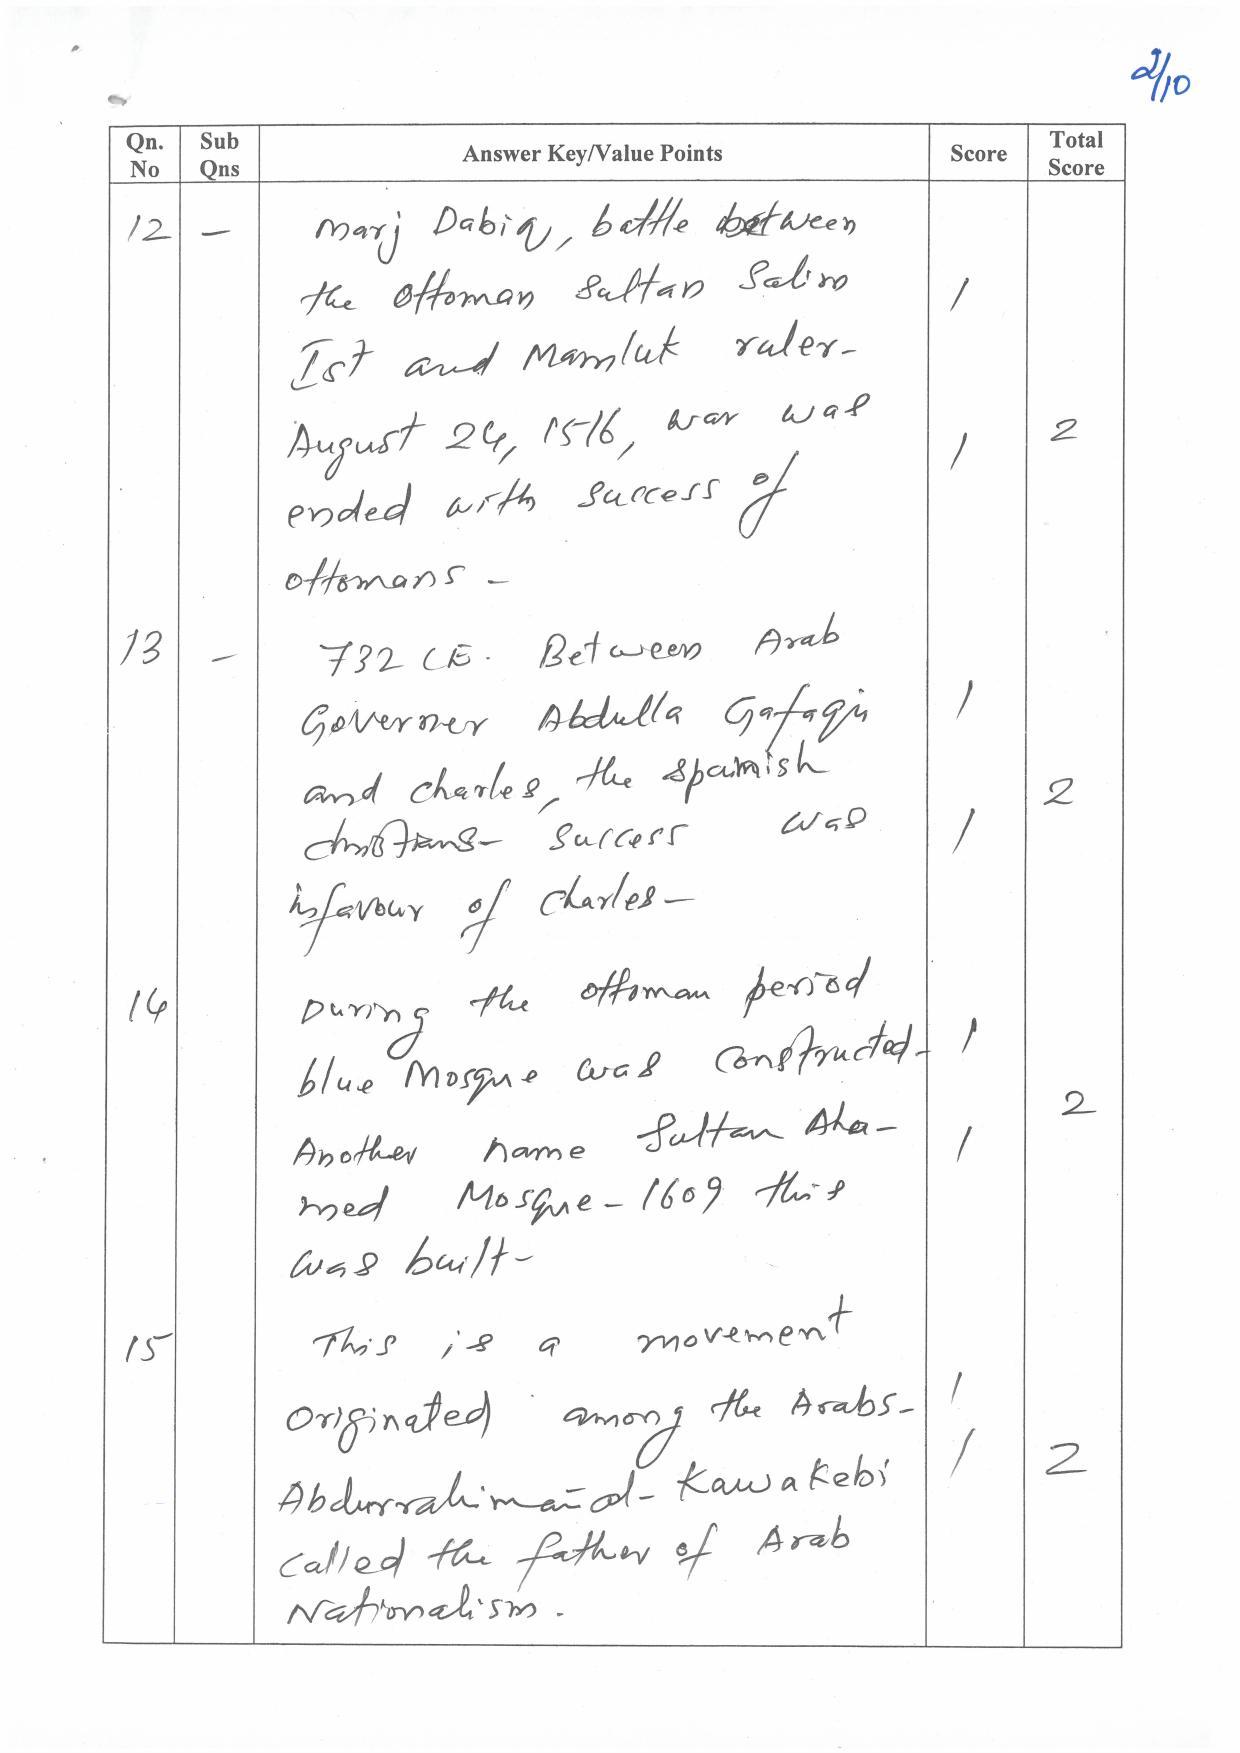 2/10
Qn. No | Sub Qns | Answer Key/Value Points | Score | Total Score
12 – Marj Dabiq, battle between
the Ottoman Sultan Salim 1
Ist and Mamluk ruler-
August 24, 1516, war was 1 2
ended with success of
Ottomans –
13 – 732 CE. Between Arab
Governer Abdulla Gafaqi 1
and charles, the spanish 2
christians – success was 1
infavour of Charles –
14 During the ottoman period
blue Mosque was constructed- 1
2
Another name Sultan Aha- 1
med Mosque – 1609 this
was built –
15 This is a movement
Originated among the Arabs- 1
Abdurrahiman al- Kawakebi 1 2
called the father of Arab
Nationalism.